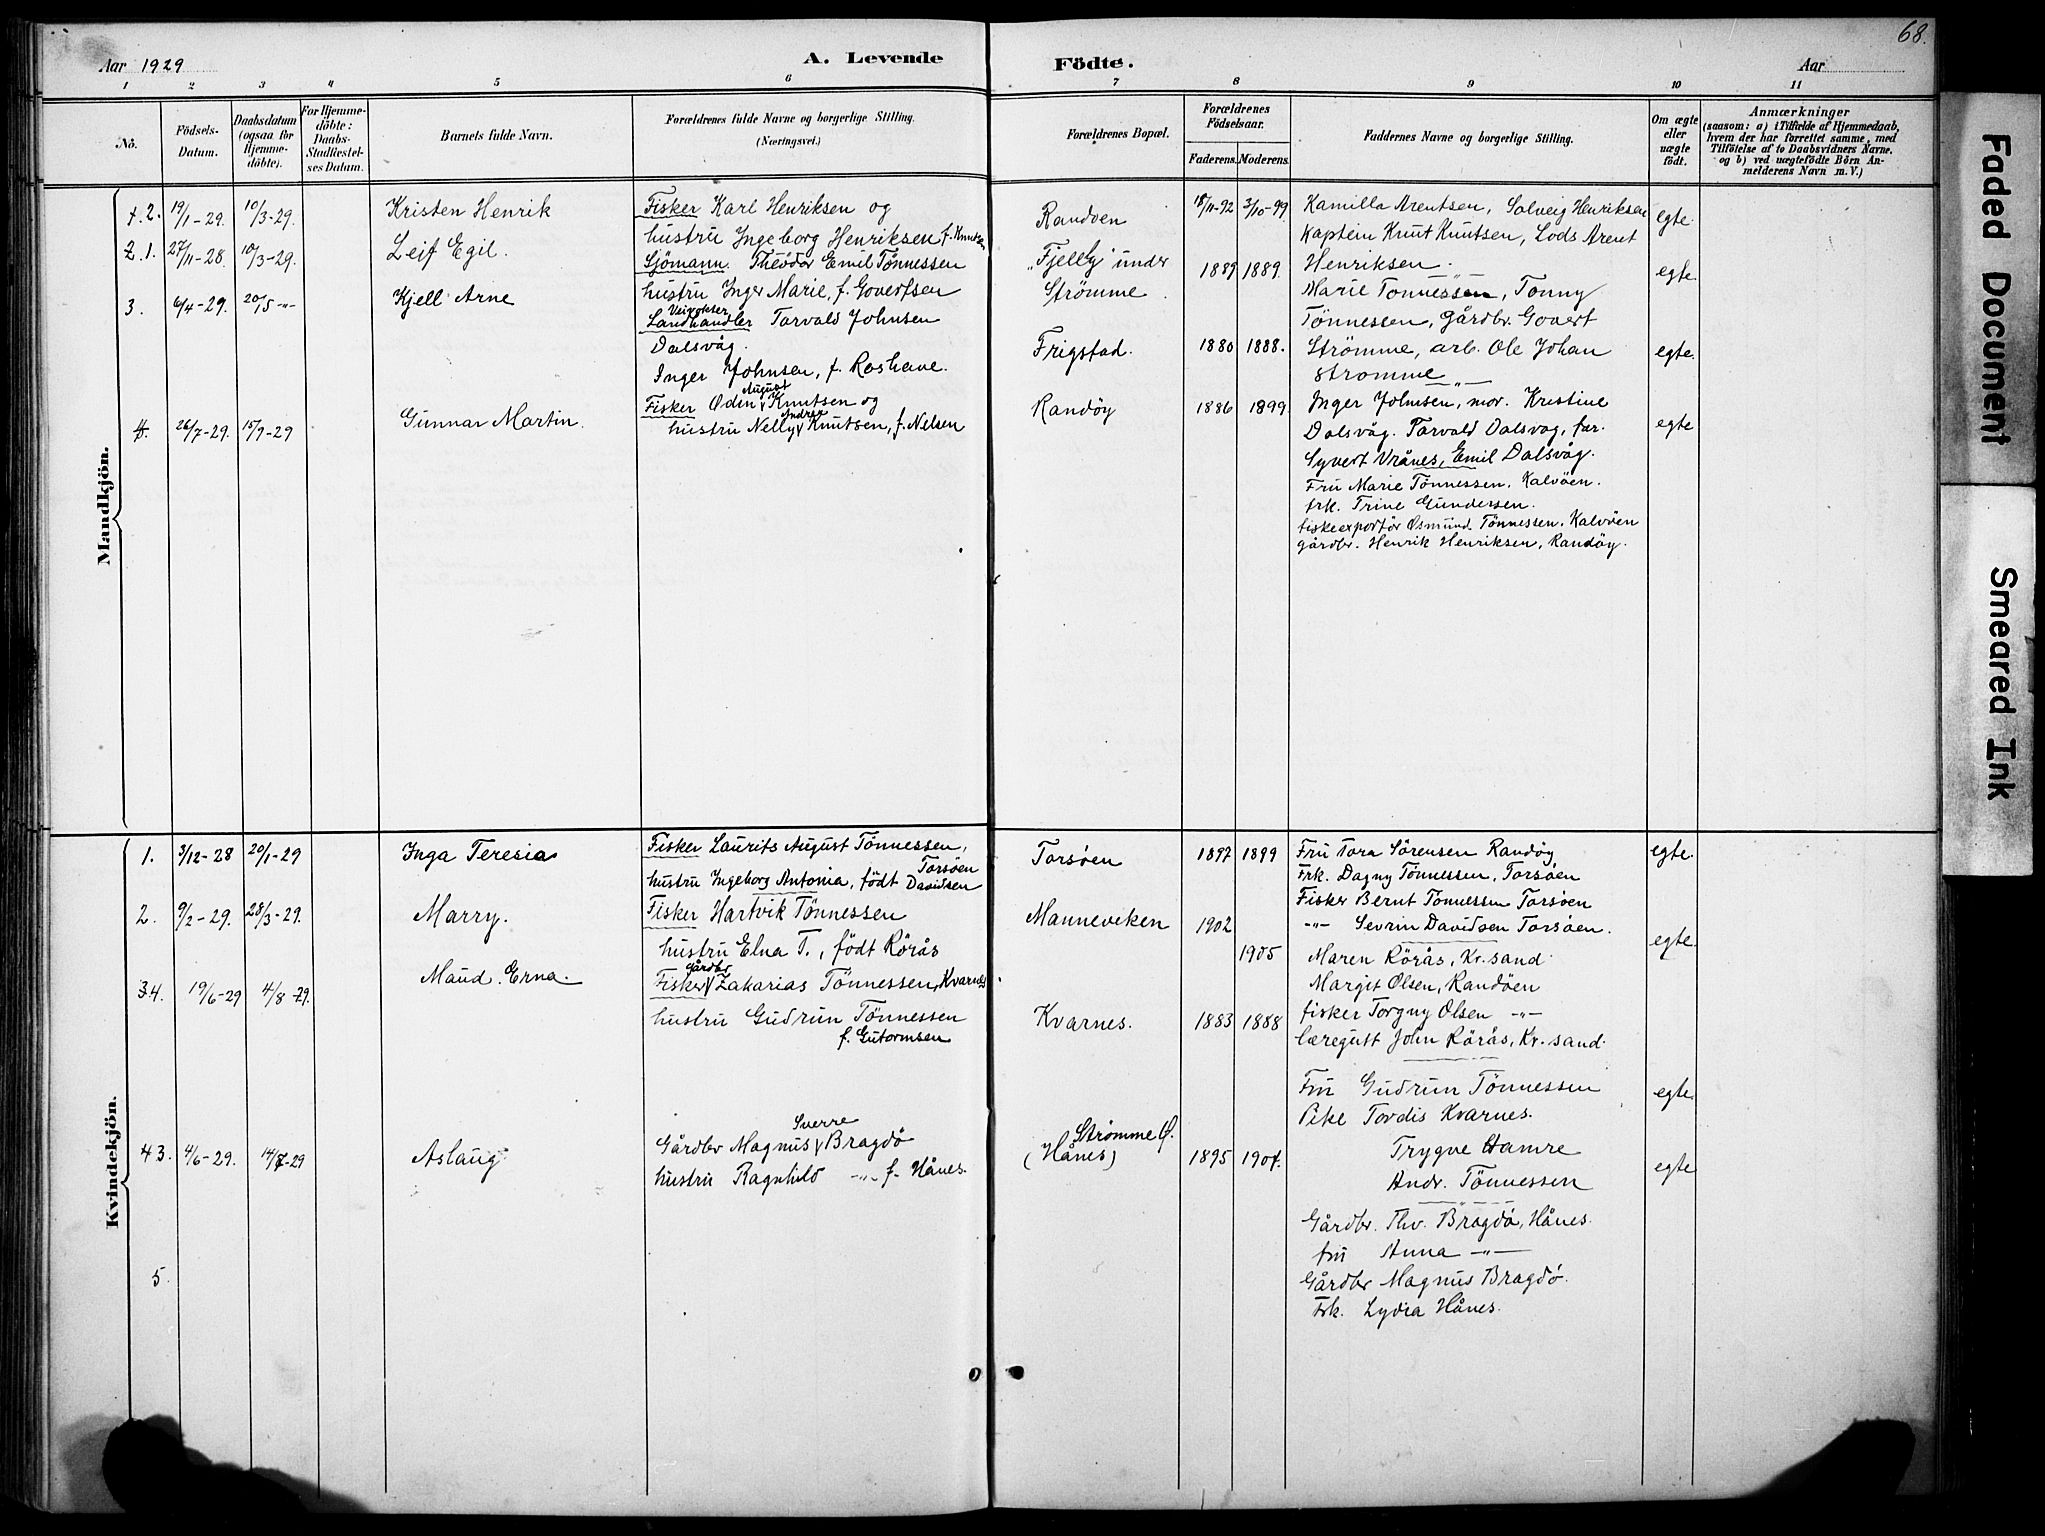 68.
Aar 1929
A. Levende
Födte.
Aar
1 2 3 4 5 6 7 8 9 10 11
No.
Födsels-Datum.
Daabsdatum (ogsaa for Hjemmedöbte).
For Hjemmedöbte: Daabs-Stadfæstelses Datum.
Barnets fulde Navn.
Forældrenes fulde Navne og borgerlige Stilling.
(Næringsvei.)
Forældrenes Bopæl.
Forældrenes Födselsaar.
Faderens. Moderens.
Faddernes Navne og borgerlige Stilling.
Om ægte eller uægte födt.
Anmærkninger
(saasom: a) i Tilfælde af Hjemmedaab, hvem der har forrettet samme, med Tilföielse af to Daabsvidners Navne. og b) ved uægtefödte Börn Anmelderens Navn m. V.)
Mandkjön.
1.2. 19/1-29. 10/3-29. Kristen Henrik
Fisker Karl Henriksen og
hustru Ingeborg Henriksen f. Knutsen
Randöen 18/11-92 3/10-99 egte
Kamilla Arentsen, Solveig Henriksen
Kaptein Knut Knutsen, Lods Arent
Henriksen.
2.1. 27/11-28. 10/3-29. Leif Egil.
Sjömann Theodor Emil Tönnessen
hustru Inger Marie, f. Govertsen
"Fjelly" under
Strömme. 1889 1889. egte
Marie Tönnessen, Tonny
Tönnessen, gårdbr. Govert
Strömme, arb. Ole Johan
Strømme
3. 6/4-29. 20/5 -"- Kjell Arne
Veivokter
Landhandler Torvald Johnsen
Dalsvåg.
Inger Johnsen, f. Roshave.
Frigstad. 1880 1888. egte.
Inger Johnsen, mor. Kristine
Dalsvåg. Torvald Dalsvog, far.
Syvert Vrånes, Emil Dalsvåg.
4. 26/7-29. 15/9-29 Gunnar Martin.
August
Fisker Odin Knutsen og
Andrea
hustru Nelly Knutsen, f. Nelsen
Randöy 1886 1899 egte
Fru Marie Tönnessen, Kalvöen.
frk. Trine Gundersen.
fiskeexportör Osmund Tönnessen, Kalvöen
gårdbr. Henrik Henriksen, Randöy.
Kvindekjön.
1. 3/12-28 20/1-29 Inga Teresia
Fisker Laurits August Tönnessen,
Torsöen
hustru Ingeborg Antonia, födt Davidsen
Torsöen 1897 1899 egte.
Fru Tora Sörensen Randöy
Frk. Dagny Tönnessen, Torsöen
Fisker Bernt Tönnessen Torsöen
-"- Sevrin Davidsen Torsöen.
2. 9/2-29. 28/3-29. Marry.
Fisker Hartvik Tönnessen
hustru Elna T., födt Rörås
Manneviken 1902 1905 egte.
Maren Rörås, Kr. sand.
Margit Olsen, Randöen
fisker Torgny Olsen -"-
læregutt John Rörås, Kr. sand.
34. 19/6-29 4/8-29. Maud Erna.
Gårdbr
Fisker Zakarias Tönnessen, Kvarnes
hustru Gudrun Tönnessen
f. Gutormsen
Kvarnes. 1883 1888 egte
Fru Gudrun Tönnessen
Pike Tordis Kvarnes.
Trygve Hamre
Andr. Tönnessen
43. 4/6-29. 14/7-29 Aslaug
Sverre
Gårdbr Magnus Bragdö
hustru Ragnhild -"- f. Hånes.
Strömme Ö.
(Hånes) 1895 1907. egte
Gårdbr. Thv. Bragdö, Hånes.
fru Anna -"-
Gårdbr Magnus Bragdö.
Frk. Lydia Hånes.
5.
Faded Document
Smeared Ink